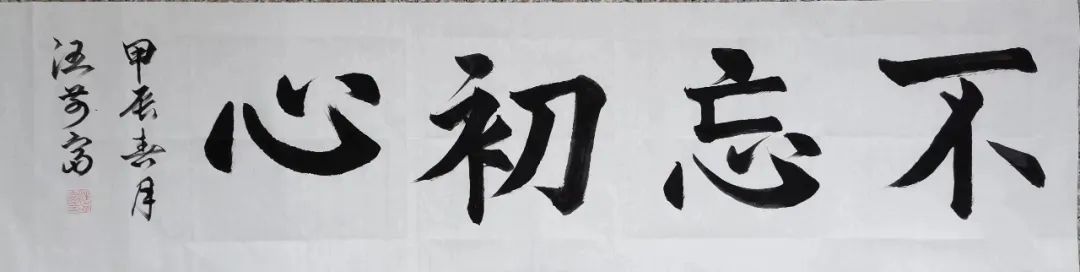 不忘初心
甲辰春月
汪芳富